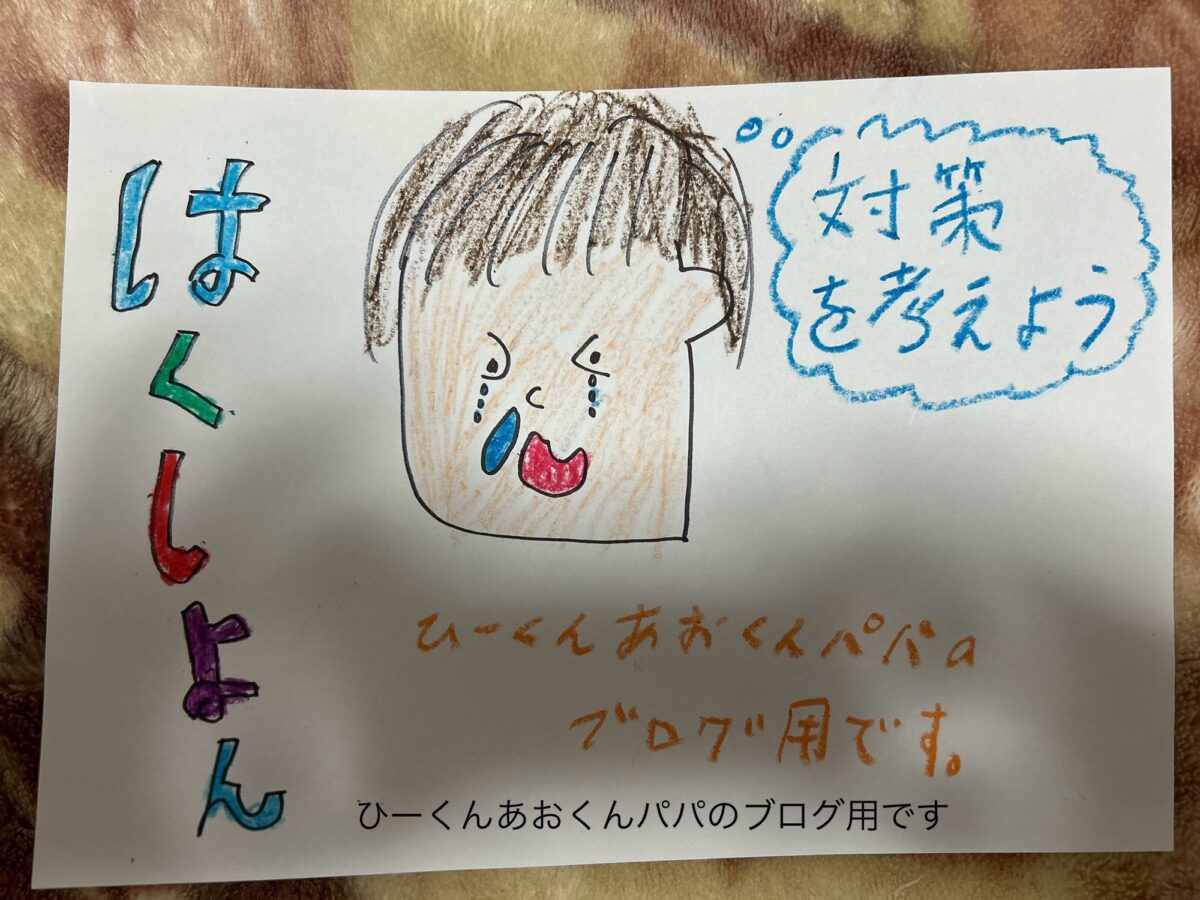 はくしょん
対策
を考えよう
ひーくんあおくんパパの
ブログ用です。
ひーくんあおくんパパのブログ用です